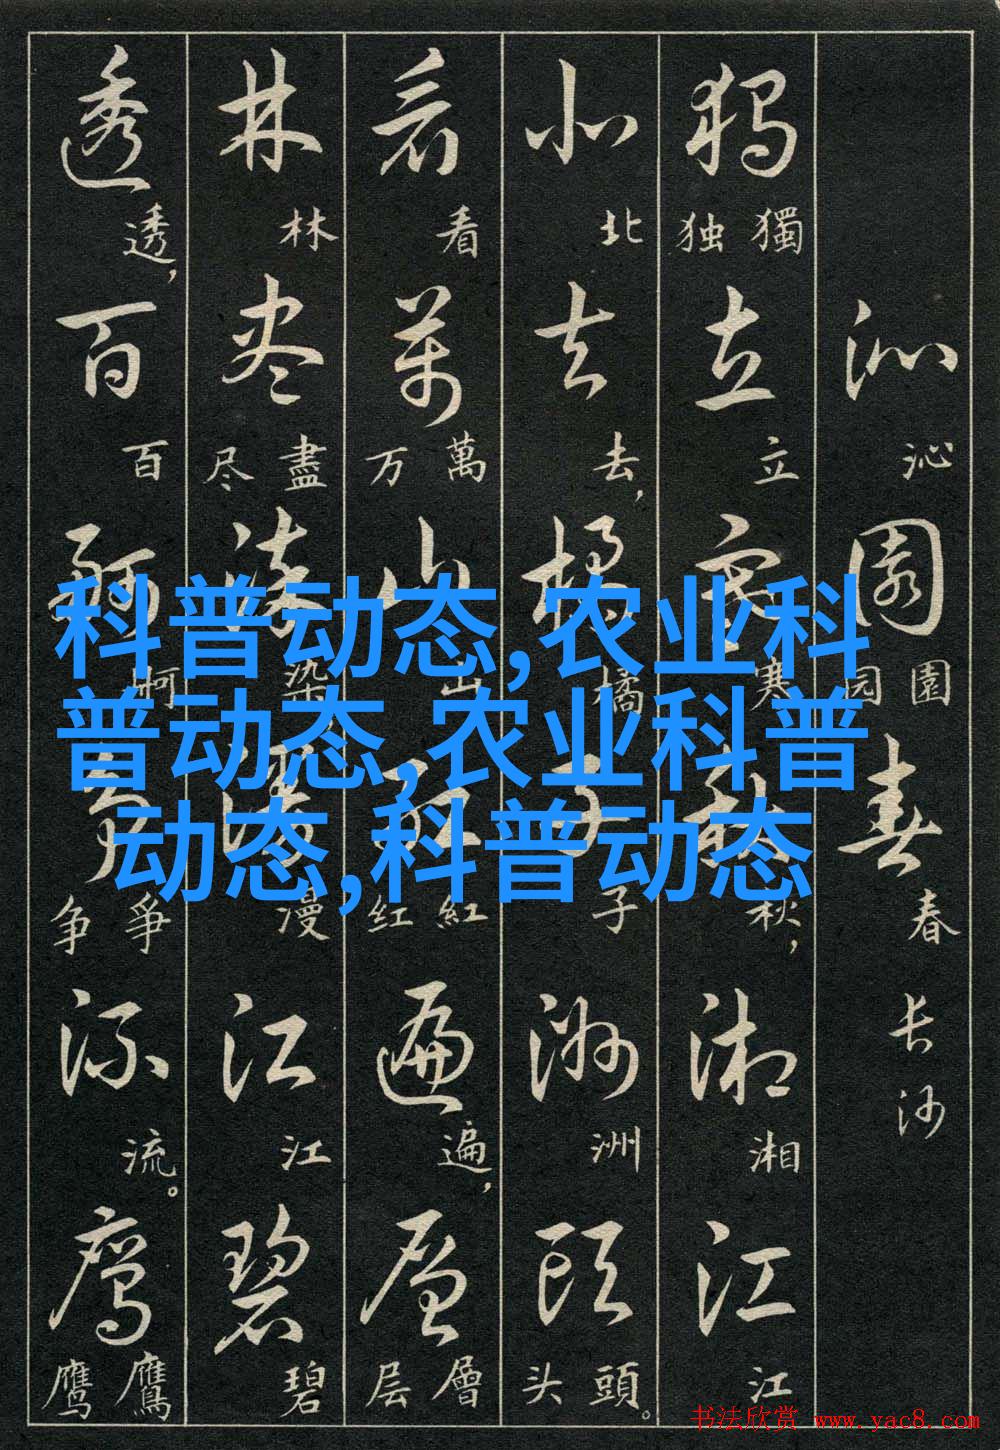 沁园春
沁園园春
长沙
独立寒秋湘江
獨独立寒秋，湘江
北去橘子洲头
北去，橘子洲頭头。
看万山红遍层
看萬万山紅红遍，層层
林尽染漫江碧
林盡尽染漫江碧
透百舸争流鹰
透，百舸爭争流。鷹鹰
科普动态,农业科
普动态,农业科普
动态,科普动态
书法欣赏 www.yac8.com